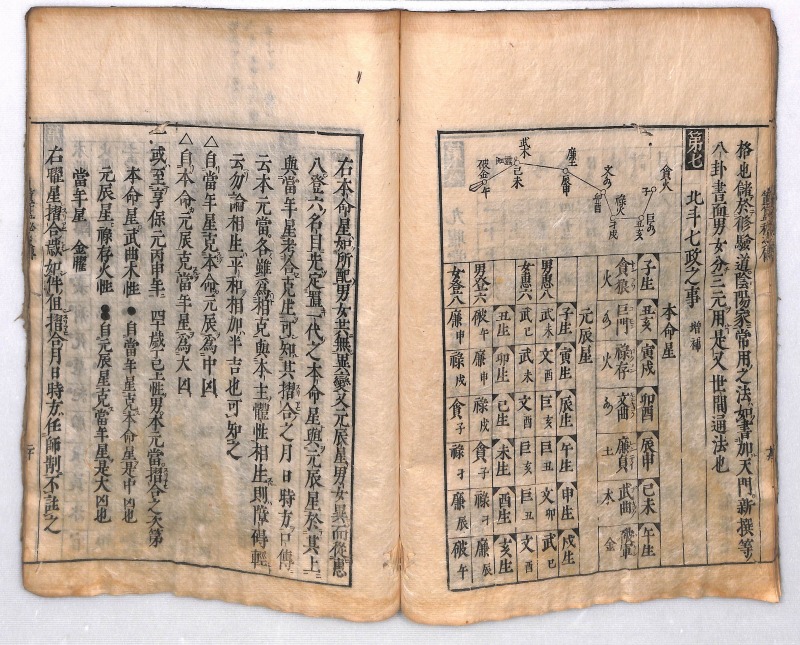 格也儲於修驗道陰陽家常用之法如書加天門新撰等
八卦書面男女分三元用是又世間通法也
第七 北斗七政之事 増補
貪火 子
巨 丑亥
禄火 寅戌
文 卯酉
廉土 辰申
武木 己未
破金 午
本命星
子生 貪狼 火
丑亥 巨門
寅戌 禄存 火
卯酉 文曲
辰申 廉貞 土
己未 武曲 木
午生 破軍 金
元辰星
子生 寅生 辰生 午生 申生 戌生
男惠八 武未 文酉 巨亥 巨丑 文卯 武巳
女惠六 武巳 武未 文酉 巨亥 巨丑 文卯
丑生 卯生 巳生 未生 酉生 亥生
男登六 破午 廉申 禄戌 貪子 禄寅 廉辰
女登八 廉申 禄戌 貪子 禄寅 廉辰 破午
右本命星如所配男女共無異變又元辰星男女異而從惠
八登六名目先定置一代之本命星與元辰星於其上
與當年星考合克生可知其摺合之月日時方口傳
云本元當各雖為相克與本主體性相生則障得輕
云勿論相生平和相加半吉也可知之
△自當年星克本命元辰為中凶
△自本命元辰克當年星為大凶
一或至享保元丙申年四十歳丁巳土性男本元當摺合之次第
本命星武曲木性 ●自當年星克本命星是中凶也
元辰星禄存火性 ●自元辰星克當年星是大凶也
當年星 金曜
右曜星摺合歳如件但摺合月日時方任師制不註之